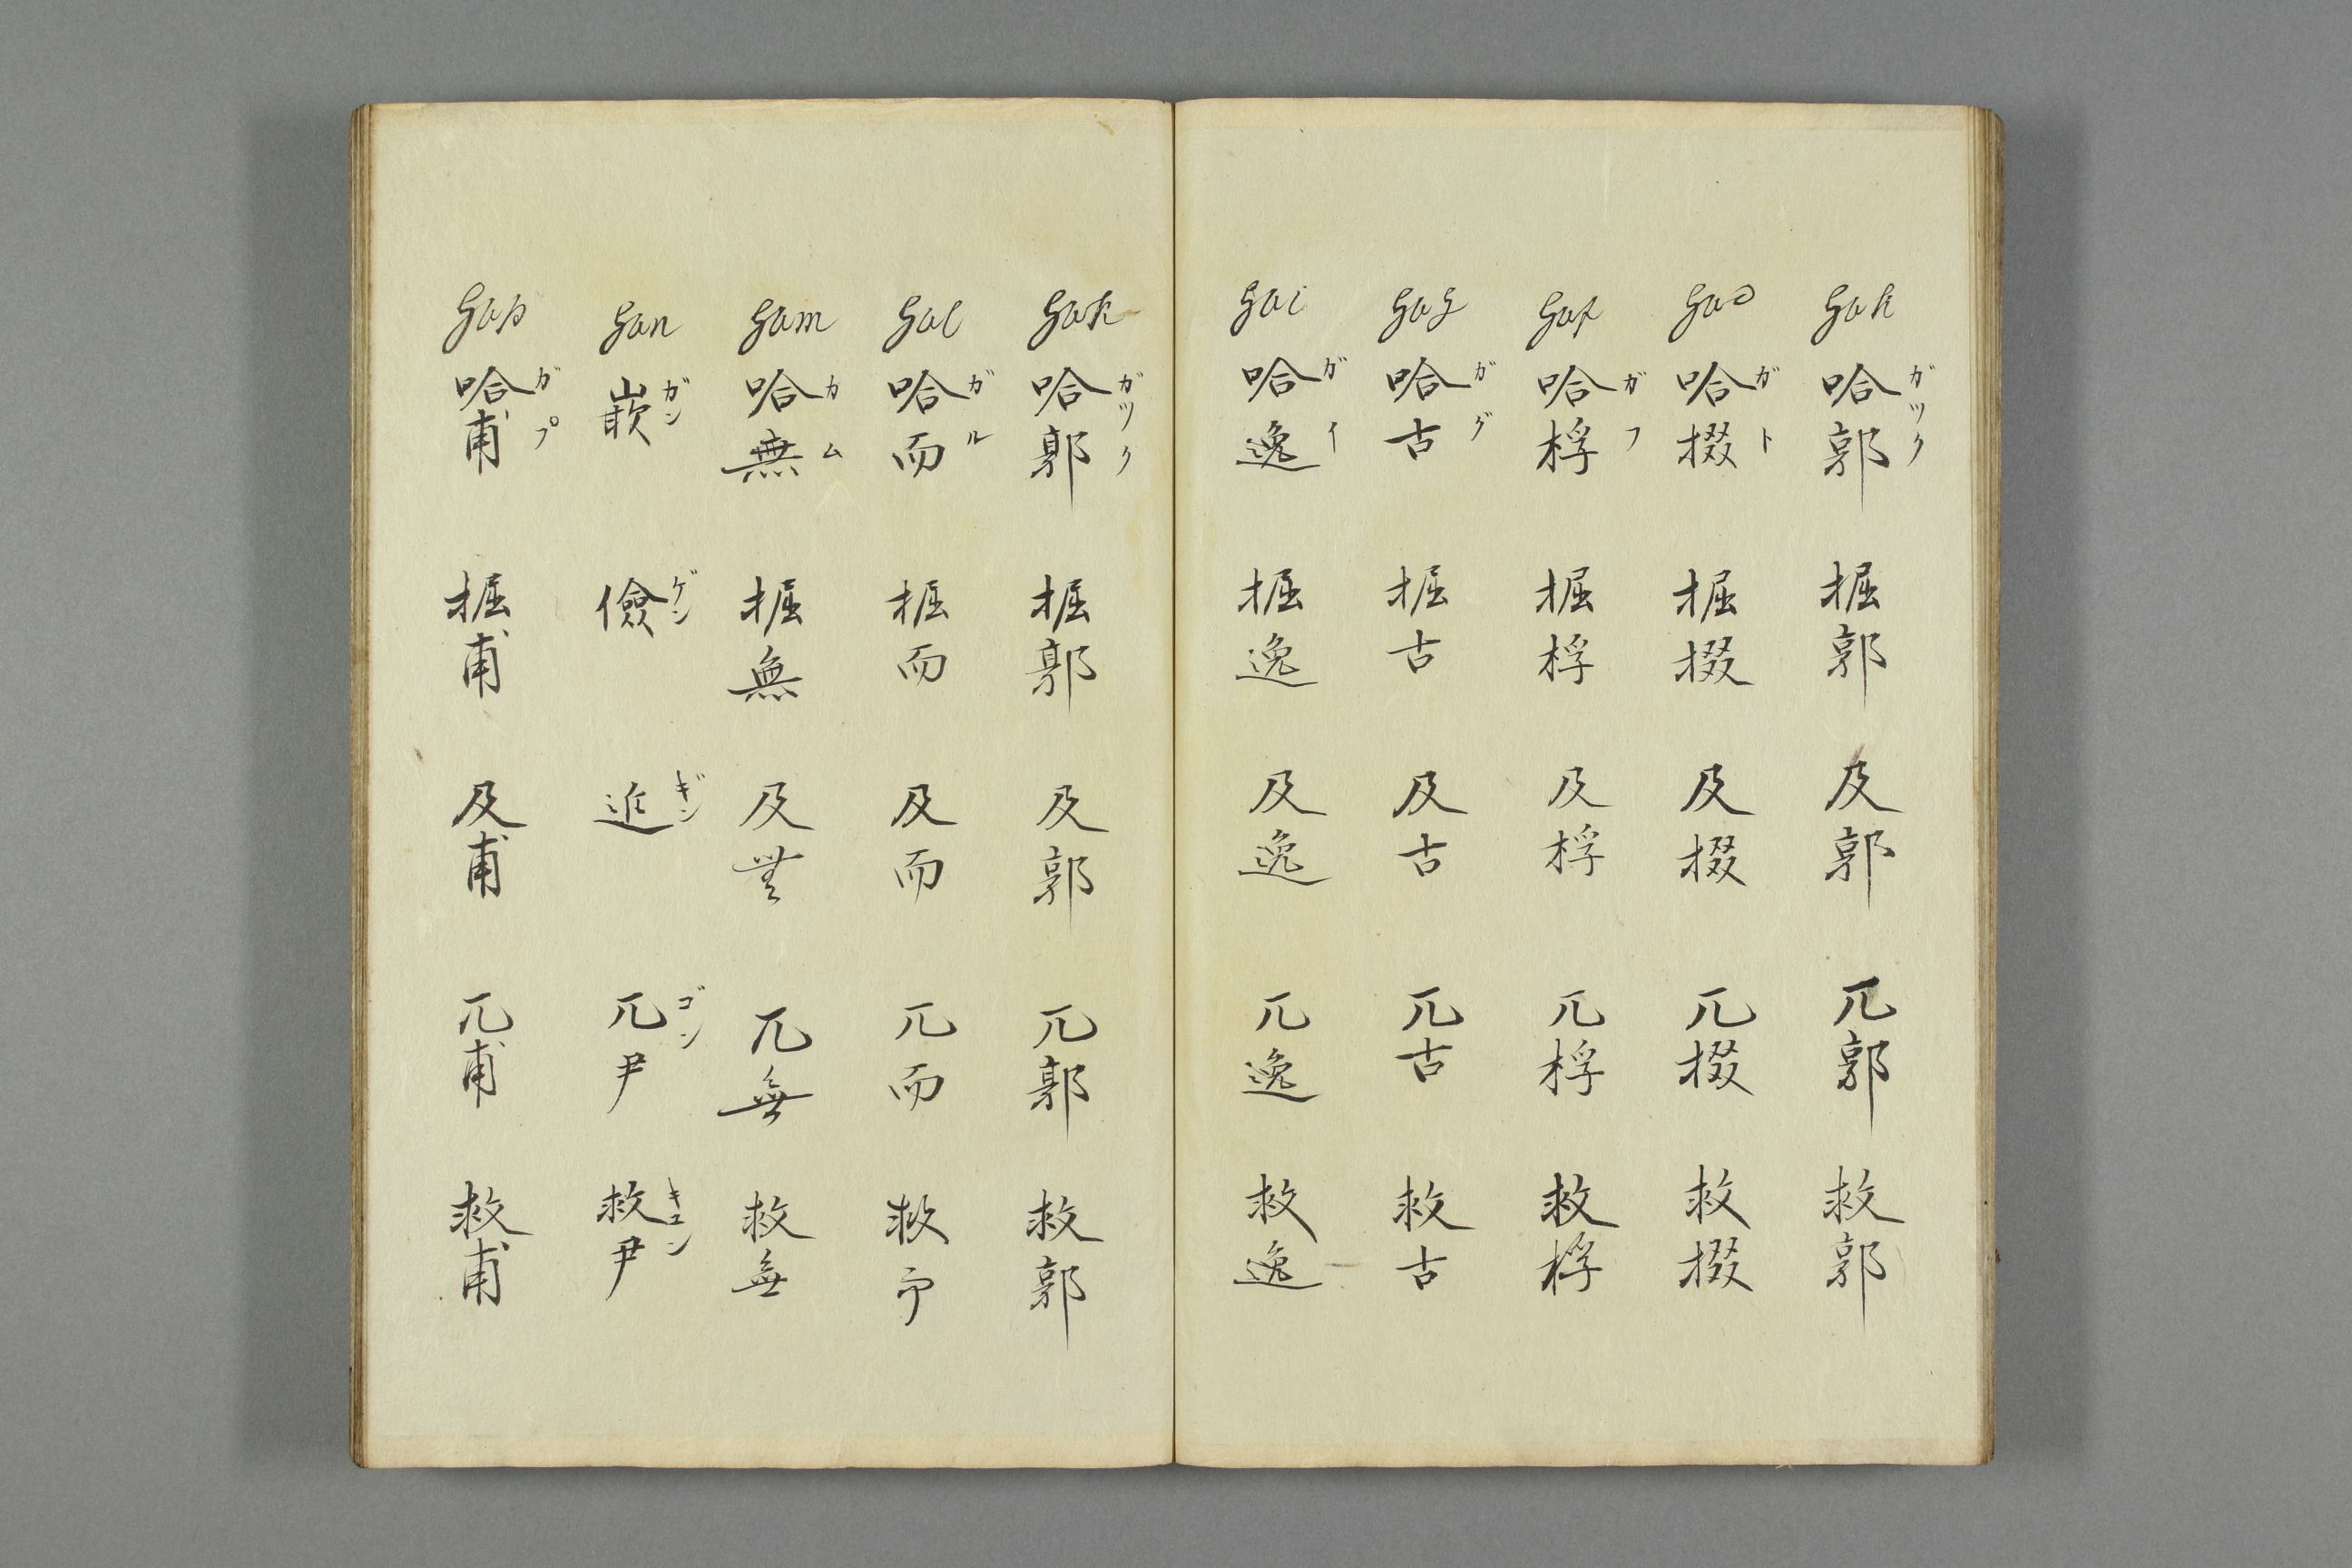 gah 哈郭 ガツク 掘郭 及郭 兀郭 救郭
gad 哈掇 ガト 掘掇 及掇 兀掇 救掇
gaf 哈桴 ガフ 掘桴 及桴 兀桴 救桴
gag 哈古 ガグ 掘古 及古 兀古 救古
gai 哈逸 ガイ 掘逸 及逸 兀逸 救逸
gak 哈郭 ガツク 掘郭 及郭 兀郭 救郭
gal 哈而 ガル 掘而 及而 兀而 救
gam 哈無 カム 掘無 及無 兀無 救無
gan 嵌 ガン 儉 ゲン 進 ギン 兀尹 ゴン 救尹 キユン
gap 哈甫 ガプ 掘甫 及甫 兀甫 救甫